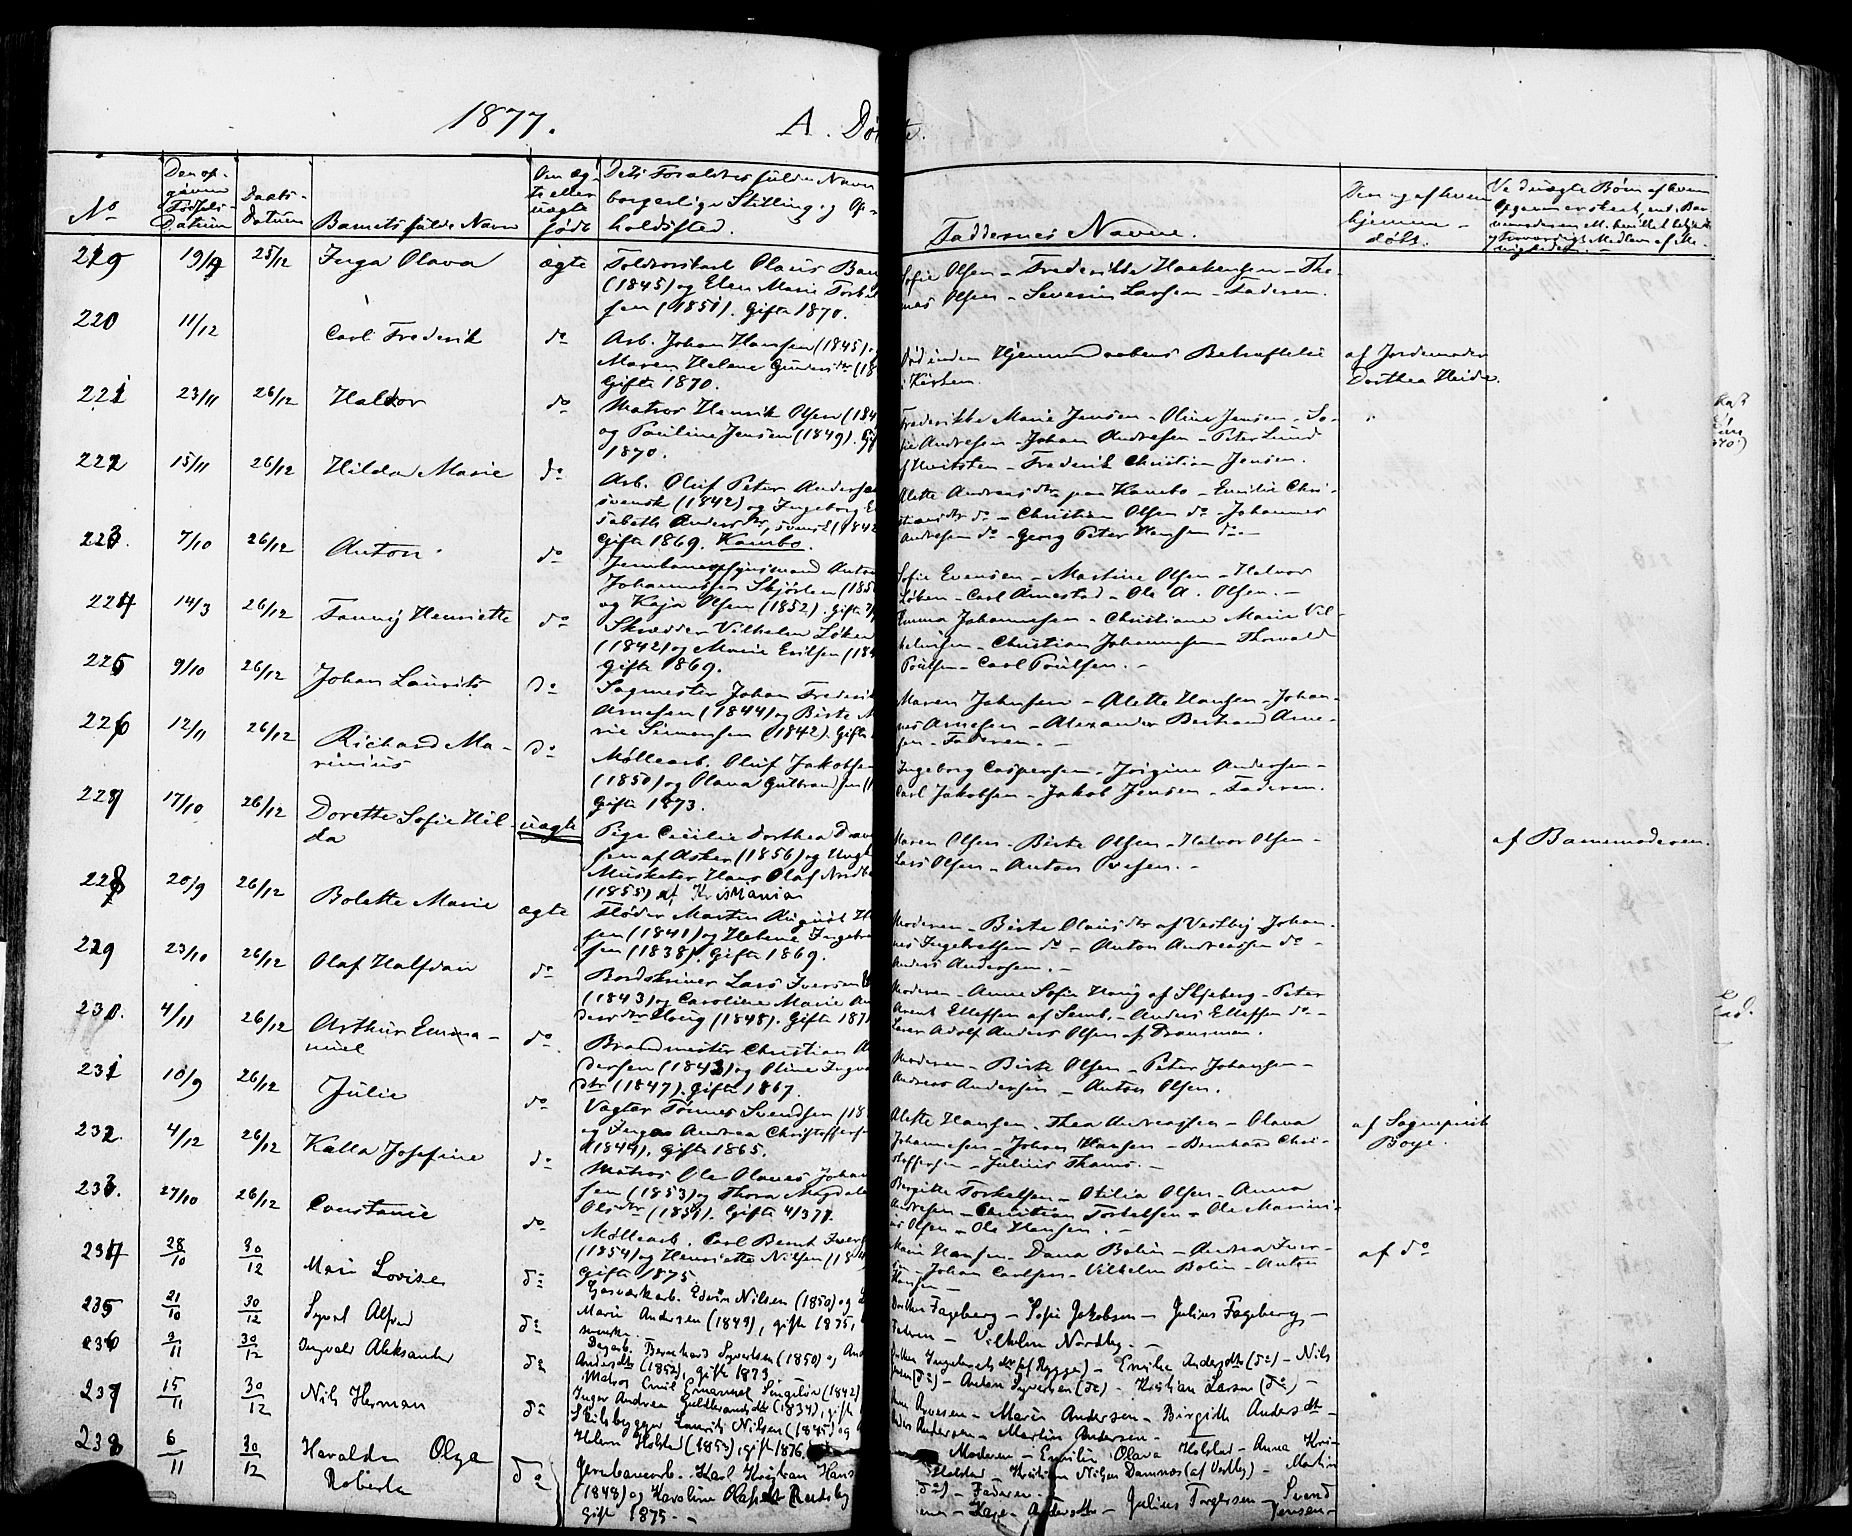 1877. A. Dø
te.
No
Den op-
givne
Fødsels-
Datum
Daabs-
datum
Barnets fulde Navn
Om æg-
te eller
uægte
født
Dets Forældres fulde Navn
borgerlige Stilling og Op-
holdssted.
Faddernes Navne.
219 19/9 25/12 Inga Olava ægte
(1845) og Elen Marie Torb
sen (1851). Gift 1870.
Sofie Olsen - Frederikke Haakensen - Tho
nes Olsen - Severin Larsen - Faderen.
220 11/12 Carl Frederik do
Arb. Johan Hansen (1845) o
Maren Helene Gundersdtr (18
Gift 1870.
Død inden Hjemmedaabens Bekræftelse
i Kirken.
af Jordemoder
Dorthea Heide.
221 23/11 26/12 Haldor do
Matros Henrik Olsen (184
og Pauline Jensen (1849). Gi
1870.
Frederikke Marie Jensen - Oline Jensen - So-
fie Andresen - Johan Andresen - Peter Lund
af Hvitsten - Frederik Christian Jensen.
222 15/11 26/12 Hilda Marie do
Arb. Oluf Peter Anders
svensk (1842) og Ingeborg E
sabeth Andersdtr, svensk (1842
Gift 1869. Kambo.
Alette Andreasdtr paa Kambo - Emilie Chri-
stiansdtr do - Christian Olsen do Johannes
Andresen do - Georg Peter Hansen do -
223 7/10 26/12 Anton do
Jernbaneopsynsmand Anton
Johannessen Skjørten (185
og Kaja Olsen (1852). Gift
Sofie Evensen - Martine Olsen - Halvor
Løken - Carl Arnestad - Ole A. Olsen. -
224 14/3 26/12 Fanny Henriette do
Skrædder Vilhelm Løken
(1842) og Marie Eriksen (184
Gift 1869.
Emma Johannesen - Christiane Marie Vil-
helmsen - Christian Johannesen - Thorvald
Poulsen - Carl Poulsen. -
225 9/10 26/12 Johan Laurits do
Sagmester Johan Frederik
Arnesen (1844) og Birte M
rie Simensen (1842). Gift
Maren Johnsen - Alette Hansen - Johan-
nes Arnesen - Alexander Bertrand Arne-
sen - Faderen. -
226 12/11 26/12 Richard Ma-
rinius do
Møllearb. Oluf Jakobsen
(1850) og Olava Gulbrandsen (1
Gift 1873.
Ingeborg Caspersen - Jørgine Andersen -
Carl Jakobsen - Jakob Jensen - Faderen.
227 17/10 26/12 Dorette Sofie Hil-
da uægte
Pige Cecilie Dorthea
sen af Asker (1856) og Ungk
Musketer Hans Olaf Nordb
(1855) af Kristiania
Maren Olsen - Birte Olsen - Halvor Olsen -
Lars Olsen - Anton
af Barnemoderen.
228 20/9 26/12 Bolette Marie ægte
Fløder Martin August H
sen (1841) og Helene Ingebre
sen (1838). Gift 1869.
Moderen - Birte Olausdtr af Vestby - Johan-
nes Ingebretsen do - Anton Andreassen do -
Anders Andersen. -
229 23/10 26/12 Olaf Halfdan do
Bordskriver Lars Iversen
(1843) og Caroline Marie An
dersdtr Houg (1848). Gift 187
Moderen - Anne Sofie Houg af Skjeberg - Peter
Arent Ellefsen af Semb. - Anders Ellefsen do -
Lærer Adolf Anders Olsen af Drammen.
230. 4/11 26/12 Arthur Emma-
nuel do.
Brandmester Christian A
dersen (1843) og Oline Ingv
dtr (1847). Gift 1867.
Moderen - Birte Olsen - Peter Johansen -
Andreas Andersen - Anton Olsen.
231 10/9 26/12 Julie do
Vægter Tønnes Svendsen (18
og Inger Andrea Christoffers
(1844), Gift 1865.
Alette Hansen - Thea Andreassen - Olava
Johannesen - Johan Hansen - Bernhard Chri-
stoffersen - Julius Thams. -
af Sognepræst
Boye.
232. 4/12 26/12 Kalla Josefine do
Matros Ole Olaves Johan
sen (1853) og Thora Magdale
Olsdtr (1857). Gift 4/3 77.
Birgitte Torkelsen - Otilia Olsen - Anna
Andresen - Christian Torkelsen - Ole Marini-
us Olsen - Ole Hansen. -
233. 27/10 26/12 Constanse do
Møllearb. Carl Bernt Iver
(1854) og Henriette Nilsen (18
Gift 1875.
Marie Hansen - Dana Bolin - Andrea Iver-
sen - Johan Carlsen - Vilhelm Bolin - Anton
Hansen -
af do
234 28/10 30/12 Mari Lovise do
Gasværkarb. Edvin Nilsen (1850) og
Marie Andersen (1849), gift 1875,
svenske.
Dorthea Fageberg - Sofie Jakobsen - Julius Fageberg -
Faderen - Vilhelm Nordby. -
235 21/10 30/12 Sigvart Alfred do
Dagarb. Bernhard Syvertsen (1850) og And
Andersdtr (1852), gift 1873.
Ingebretsdtr (af Rygge) - Emilie Andersdtr (do) - Nils
(do) - Anton Syvertsen (do) - Kristian Larsen (do) -
236 3/11 30/12 Ingvald Aleksander do
Matros Emil Emanuel (1842)
Inger Andrea Guldbrandsdtr (1834), gift
Arvesen - Marie Andersen - Birgitte Andersdtr -
Andersen - Martin Andersen. -
237 15/11 30/12 Nils Herman do
Skibsbygger Laurits Nilsen (1845) og
Helene Holstad (1853), gift 1876.
Moderen - Emilie Olava Holstad - Anna Kri-
Holstad - Kristian Nilsen Damnæs (af Vestby) - Martin
(do) - Faderen. -
238 6/11 30/12 Haralda Olga
Roberta do
Jernbanearb. Karl Kristian Hans
(1848) og Karoline Olafsdtr Rudsby
Gift 1875. -
Kaja Andersdtr - Julius Torgersen - Svend
Jensen -